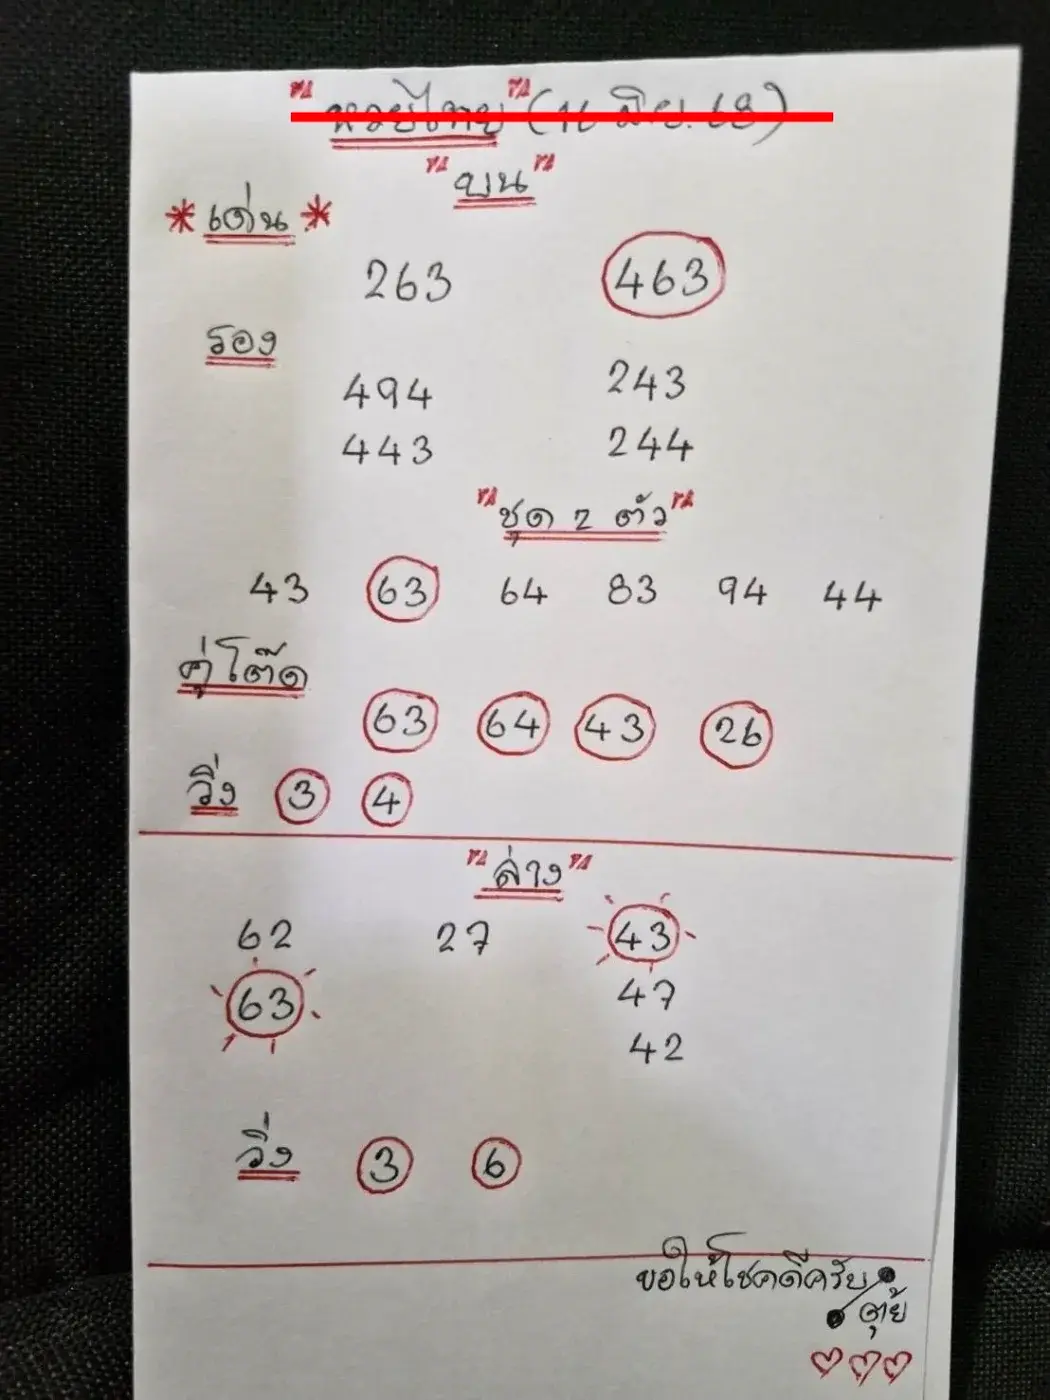 หวยไทย (16 มิย. 68)
"บน"
*เด่น*
263 463
รอง
494 243
443 244
"ชุด 2 ตัว"
43 63 64 83 94 44
คู่โต๊ด
63 64 43 26
วิ่ง 3 4
"ล่าง"
62 27 43
63 47
42
วิ่ง 3 6
ขอให้โชคดีครับ
ตุ้ย